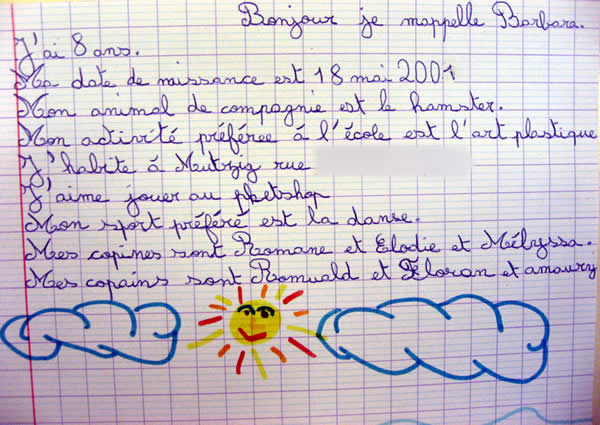 Bonjour je mappelle Barbara.
J'ai 8 ans.
Ma date de naissance est 18 mai 2001
Mon animal de compagnie est le hamster.
Mon activité préférée á l'école est l'art plastique
J'habite á Mutzig rue
J'aime jouer au petshop
Mon sport préféré est la danse.
Mes copines sont Romane et Elodie et Mélyssa.
Mes copains sont Romuald et Floran et amaury